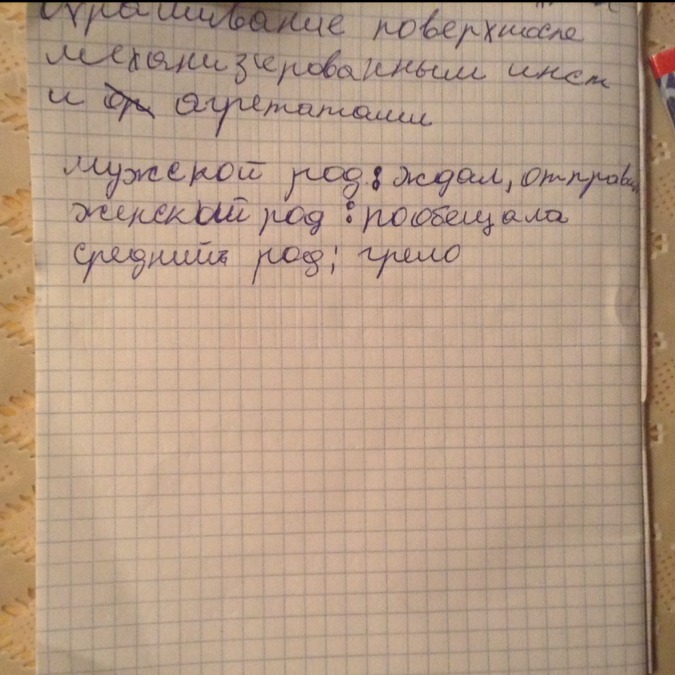 Окрашивание поверхносте
механизированным инст
и агрегатами
мужской род: ждал, отправи
женский род: пообещала
средний род; грело